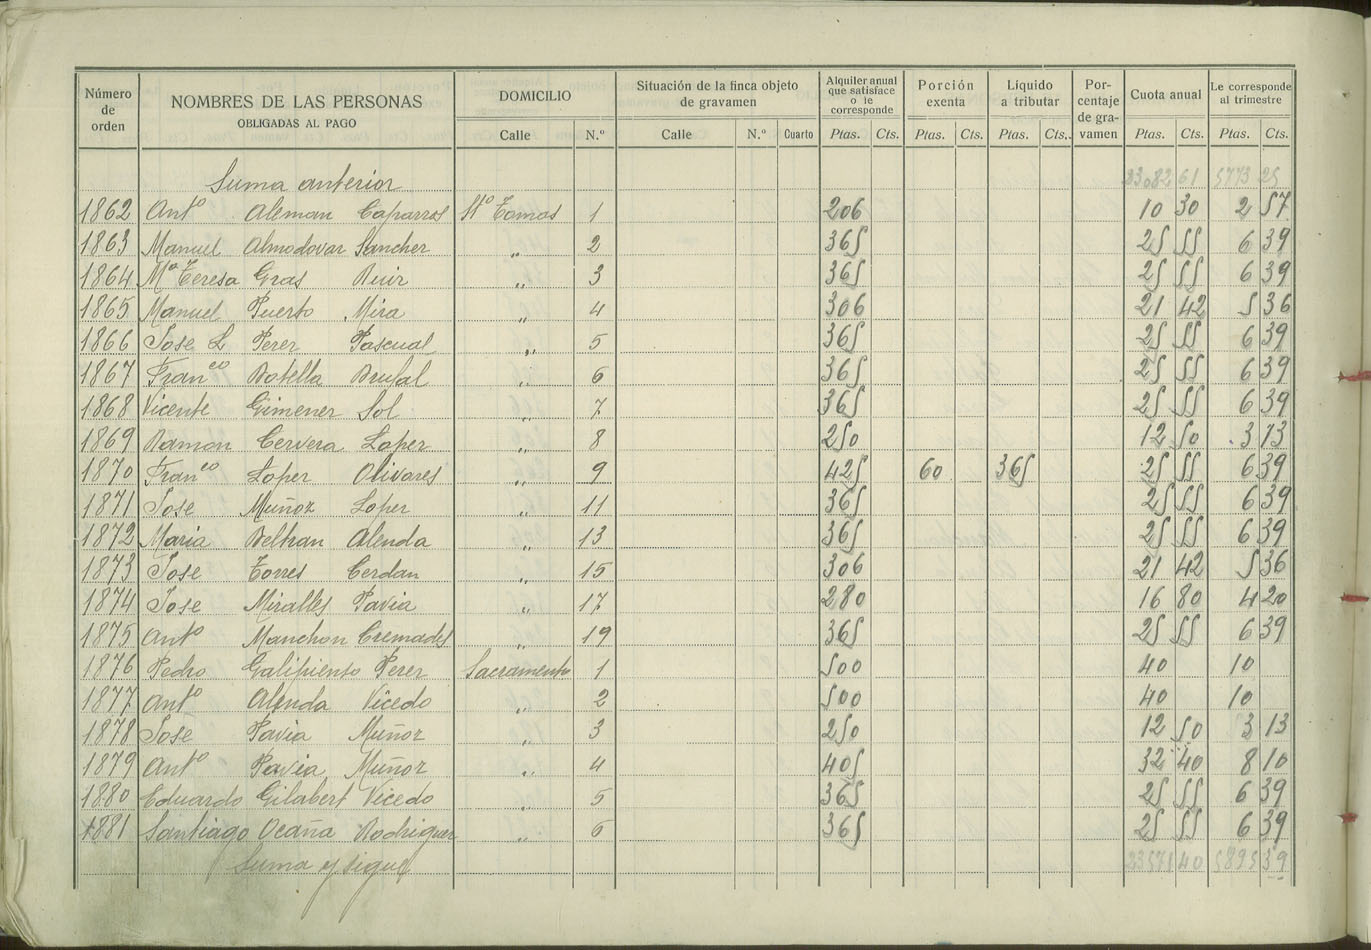 Número de orden NOMBRES DE LAS PERSONAS OBLIGADAS AL PAGO DOMICILIO Situación de la finca objeto de gravamen Alquiler anual que satisface o le corresponde Porción exenta Líquido a tributar Por-centaje de gra-vamen Cuota anual Le corresponde al trimestre
Calle N.º Calle N.º Cuarto Ptas. Cts. Ptas. Cts. Ptas. Cts. Ptas. Cts. Ptas. Cts.
Suma anterior 23082 61 5773 25
1862 Antº Aleman Caparros Stº Tomas 1 206 10 30 2 57
1863 Manuel Almodovar Sancher " 2 365 25 55 6 39
1864 Mª Teresa Gras Ruir " 3 365 25 55 6 39
1865 Manuel Puerto Mira " 4 306 21 42 5 36
1866 Jose L Perer Pascual " 5 365 25 55 6 39
1867 Franco Botella Brufal " 6 365 25 55 6 39
1868 Vicente Gimener Sol " 7 365 25 55 6 39
1869 Ramon Cervera Loper " 8 250 12 50 3 13
1870 Franco Loper Olivares " 9 425 60 365 25 55 6 39
1871 Jose Muñoz Loper " 11 365 25 55 6 39
1872 Maria Beltran Alenda " 13 365 25 55 6 39
1873 Jose Torres Cerdan " 15 306 21 42 5 36
1874 Jose Miralles Pavia " 17 280 16 80 4 20
1875 Antº Manchon Cremades " 19 365 25 55 6 39
1876 Pedro Galipienso Perer Sacramento 1 500 40 10
1877 Antº Alenda Vicedo " 2 500 40 10
1878 Jose Pavia Muñoz " 3 250 12 50 3 13
1879 Antº Pavia Muñoz " 4 405 32 40 8 10
1880 Eduardo Gilabert Vicedo " 5 365 25 55 6 39
1881 Santiago Ocaña Rodriguer " 6 365 25 55 6 39
Suma y sigue 23571 40 5895 39